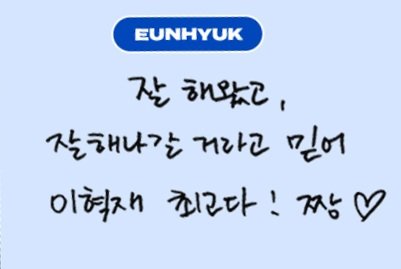 EUNHYUK
잘 해왔고,
잘해나갈 거라고 믿어
이혁재 최고다! 짱♡